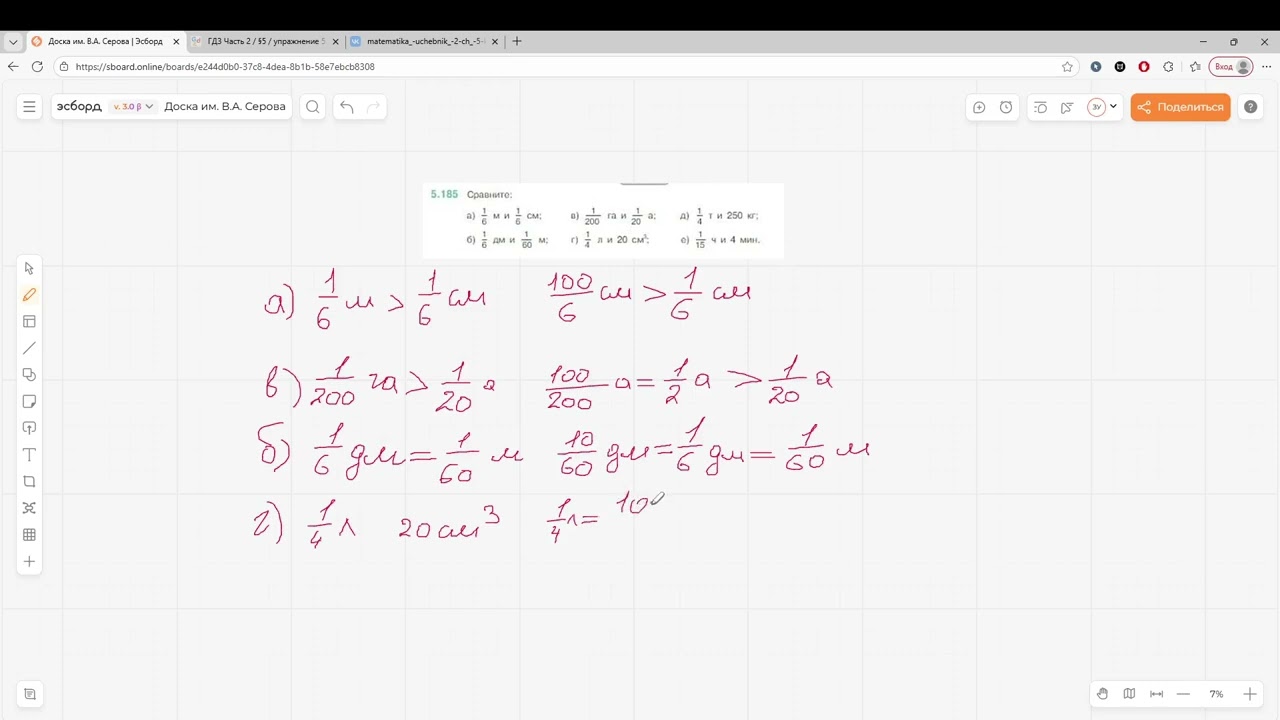 Доска им. В.А. Серова | Эсборд
ГДЗ Часть 2 / §5 / упражнение 5
matematika_-uchebnik_-2-ch_-5-
https://sboard.online/boards/e244d0b0-37c8-4dea-8b1b-58e7ebcb8308
Вход
эсборд v. 3.0 β Доска им. В.А. Серова
ЗУ
Поделиться
5.185 Сравните:
а) 1/6 м и 1/6 см; в) 1/200 га и 1/20 а; д) 1/4 т и 250 кг;
б) 1/6 дм и 1/60 м; г) 1/4 л и 20 см³; е) 1/15 ч и 4 мин.
а) 1/6 м > 1/6 см 100/6 см > 1/6 см
в) 1/200 га > 1/20 а 100/200 а = 1/2 а > 1/20 а
б) 1/6 дм = 1/60 м 10/60 дм = 1/6 дм = 1/60 м
г) 1/4 л 20 см³ 1/4 л = 100
7%